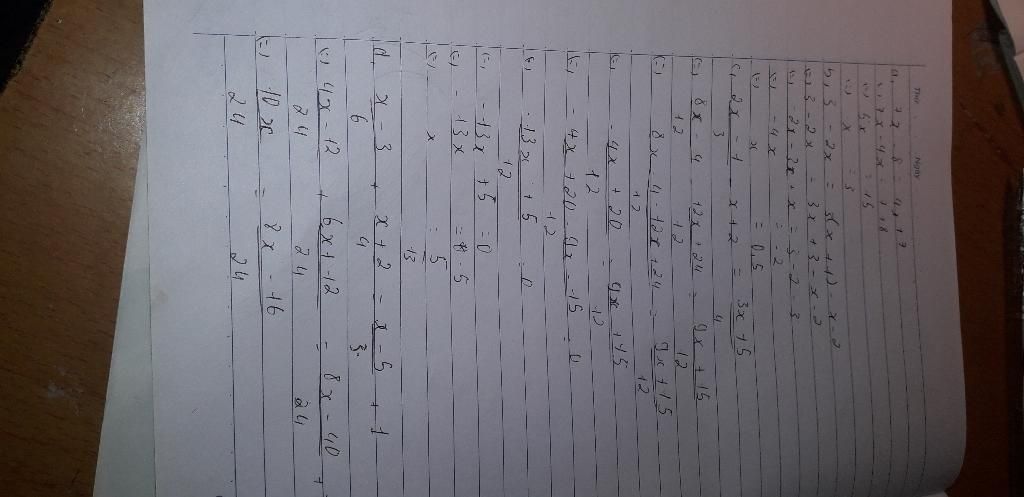 Thứ Ngày
a, 7x - 8 = 4x + 7
(=) 7x - 4x = 7 + 8
(=) 3x = 15
(=) x = 5
b, 3 - 2x = 3(x + 1) - x - 2
(=) 3 - 2x = 3x + 3 - x - 2
(=) - 2x - 3x + x = 3 - 2 - 3
(=) - 4x = - 2
(=) x = 0,5
c, 2x - 1 / 3 - x + 2 = 3x + 5 / 4
(=) 8x - 4 / 12 - 12x + 24 / 12 = 9x + 15 / 12
(=) 8x - 4 - 12x + 24 / 12 = 9x + 15 / 12
(=) - 4x + 20 / 12 = 9x + 15 / 12
(=) - 4x + 20 - 9x - 15 / 12 = 0
(=) - 13x + 5 / 12 = 0
(=) - 13x + 5 = 0
(=) - 13x = - 5
(=) x = 5 / 13
d, x - 3 / 6 + x + 2 / 4 = x - 5 / 3 + 1
(=) 4x - 12 / 24 + 6x + 12 / 24 = 8x - 40 / 24 +
(=) 10x / 24 = 8x - 16 / 24